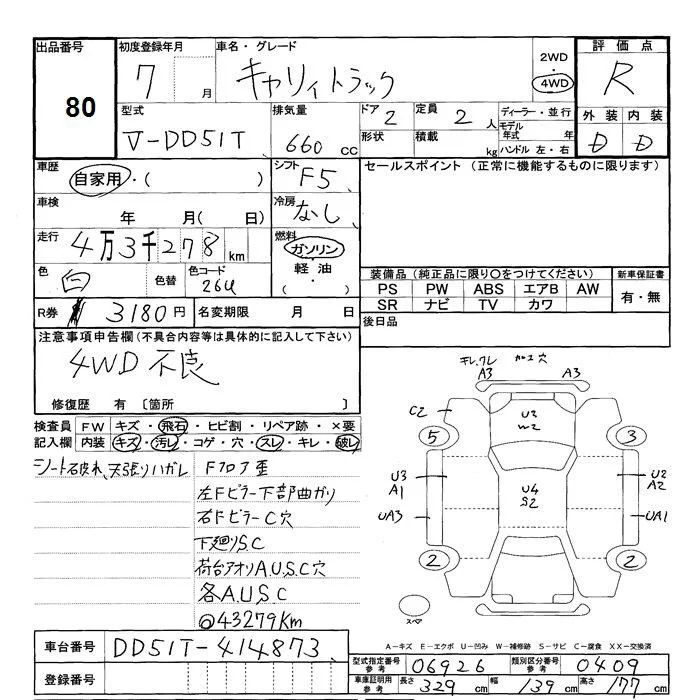 出品番号 初度登録年月 車名・グレード 2WD ・ 4WD 評価点
80 7 月 キャリィトラック R
型式 排気量 ドア 2 定員 2 人 ディーラー・並行 外装 内装
V-DD51T 660 cc 形状 積載 kg モデル年式 年 ハンドル 左・右 D D
車歴 自家用・( ) シフト F5 セールスポイント (正常に機能するものに限ります)
車検 年 月( 日) 冷房 なし
走行 4万3千278km 燃料 ガソリン・軽油・( )
色 白 色替 色コード 26U 装備品(純正品に限り○をつけてください) 新車保証書
PS PW ABS エアB AW 有・無
SR ナビ TV カワ
R券 ¥ 3180円 名変期限 月 日 後日品
注意事項申告欄(不具合内容等は具体的に記入して下さい)
4WD 不良
修復歴 有 〔箇所 〕
検査員 FW キズ・飛石・ヒビ割・リペア跡・×要
記入欄 内装 キズ・汚レ・コゲ・穴・スレ・キレ・破レ
シート破れ、天張りハガレ Fフロア歪
左Fピラー下部曲ガリ
右FピラーC穴
下廻りS.C
荷台アオリA.U.S.C穴
各A.U.S.C
◎43279Km
キレ、ワレ カロエ穴
A3 A3
C2 U2 W2
5 3
U3 A1 U4 S2 U2 A2
UA3 UA1
2 2
スペア
A－キズ E－エクボ U－凹み W－補修跡 S－サビ C－腐食 XX－交換済
車台番号 DD51T-414873
型式指定番号 参考 06926 類別区分番号 参考 0409
登録番号 車庫証明用 参考 長さ 329 cm 幅 139 cm 高さ 177 cm